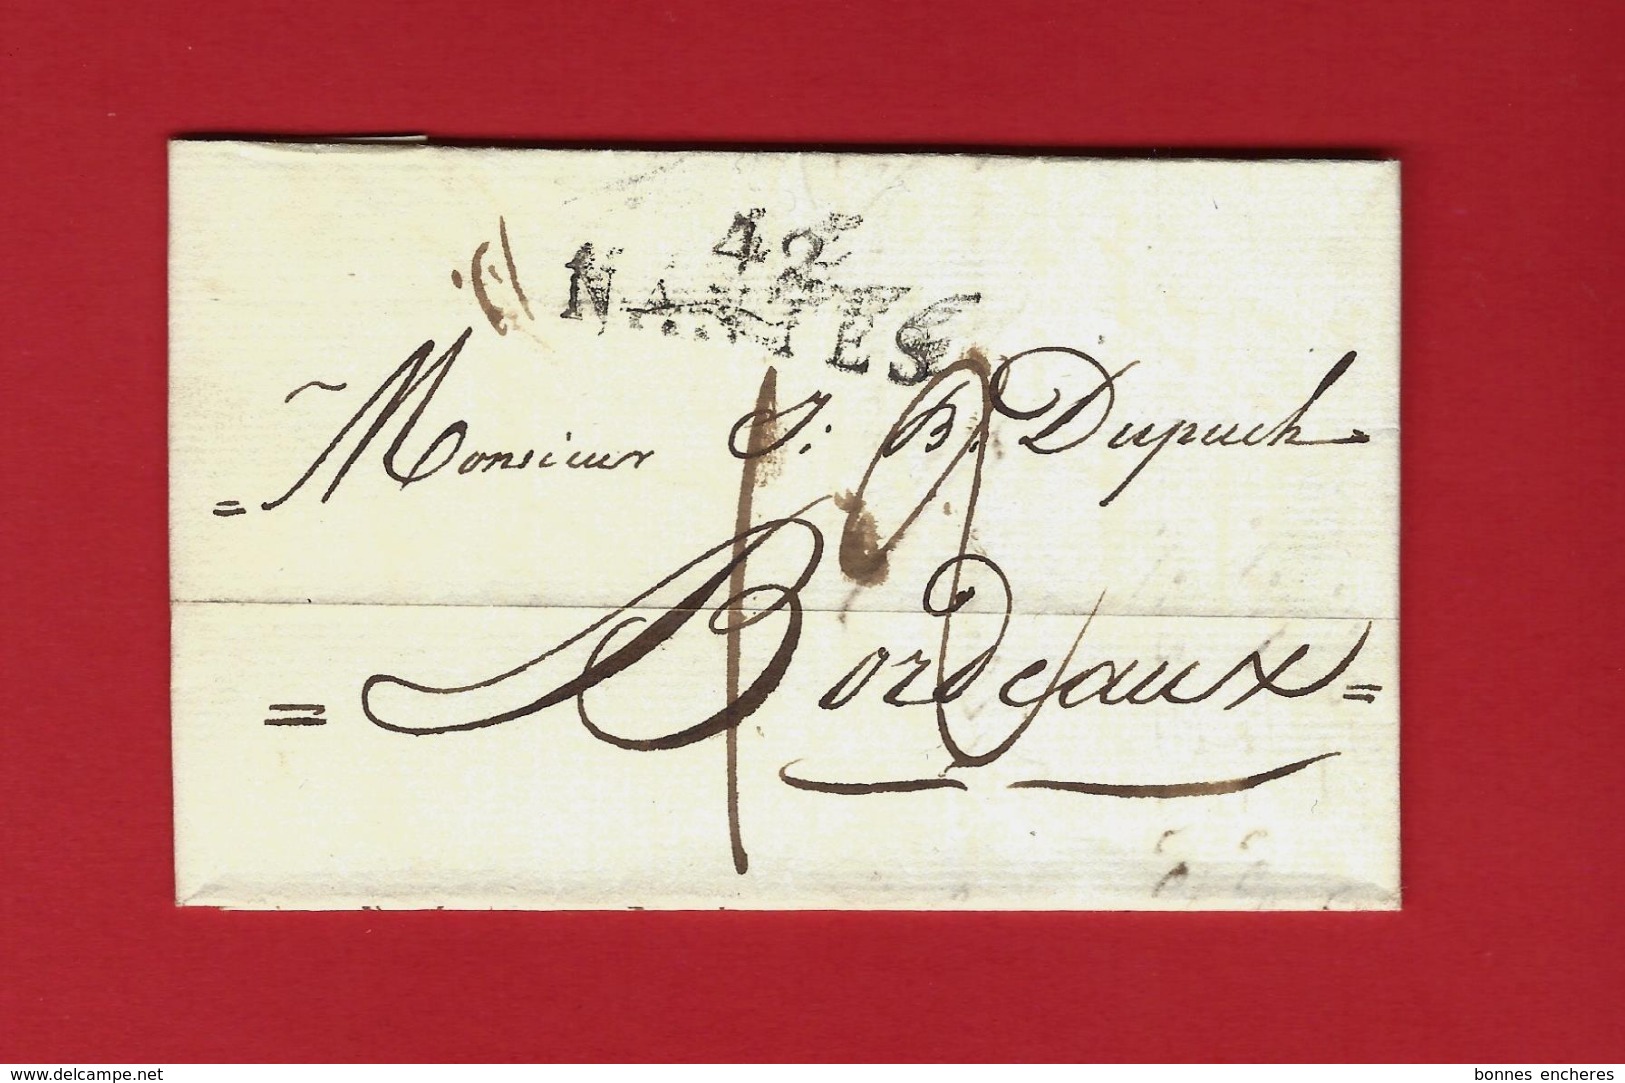 42
NANTES
= Monsieur J: B: Dupuch
= Bordeaux =
www.delcampe.net
bonnes encheres